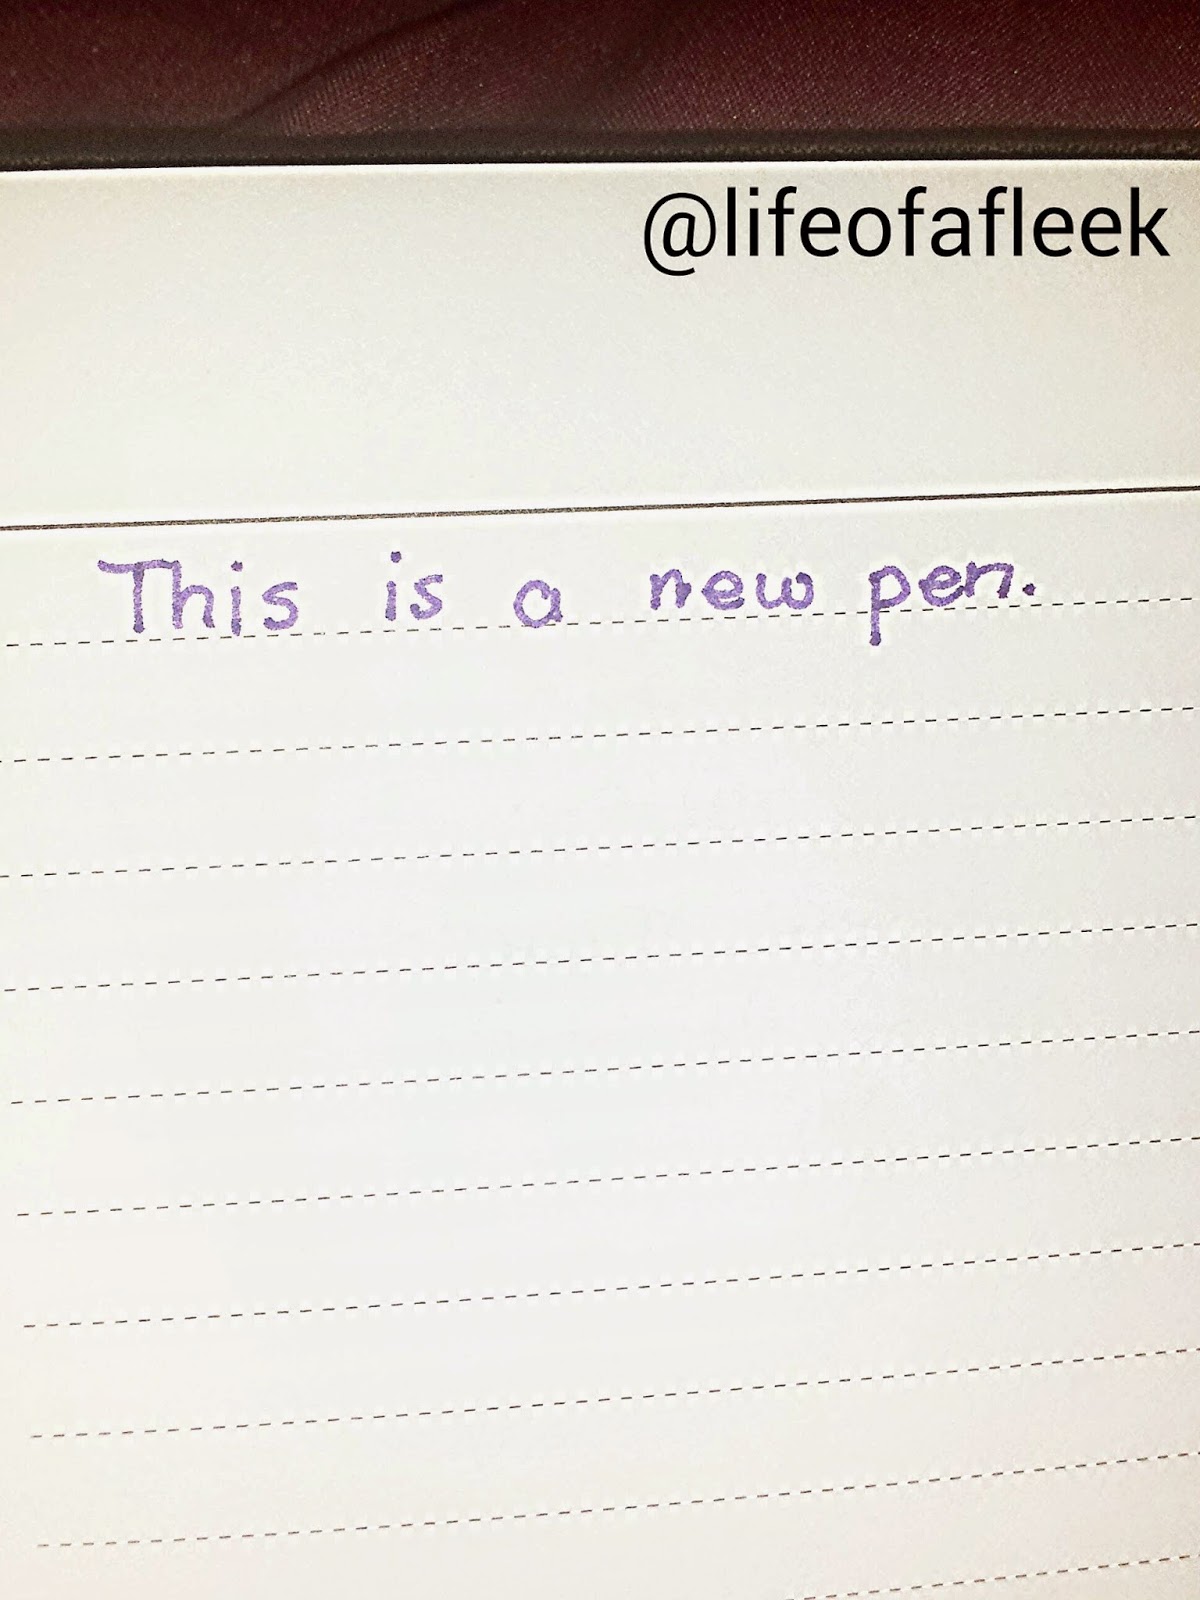 @lifeofafleek
This is a new pen.